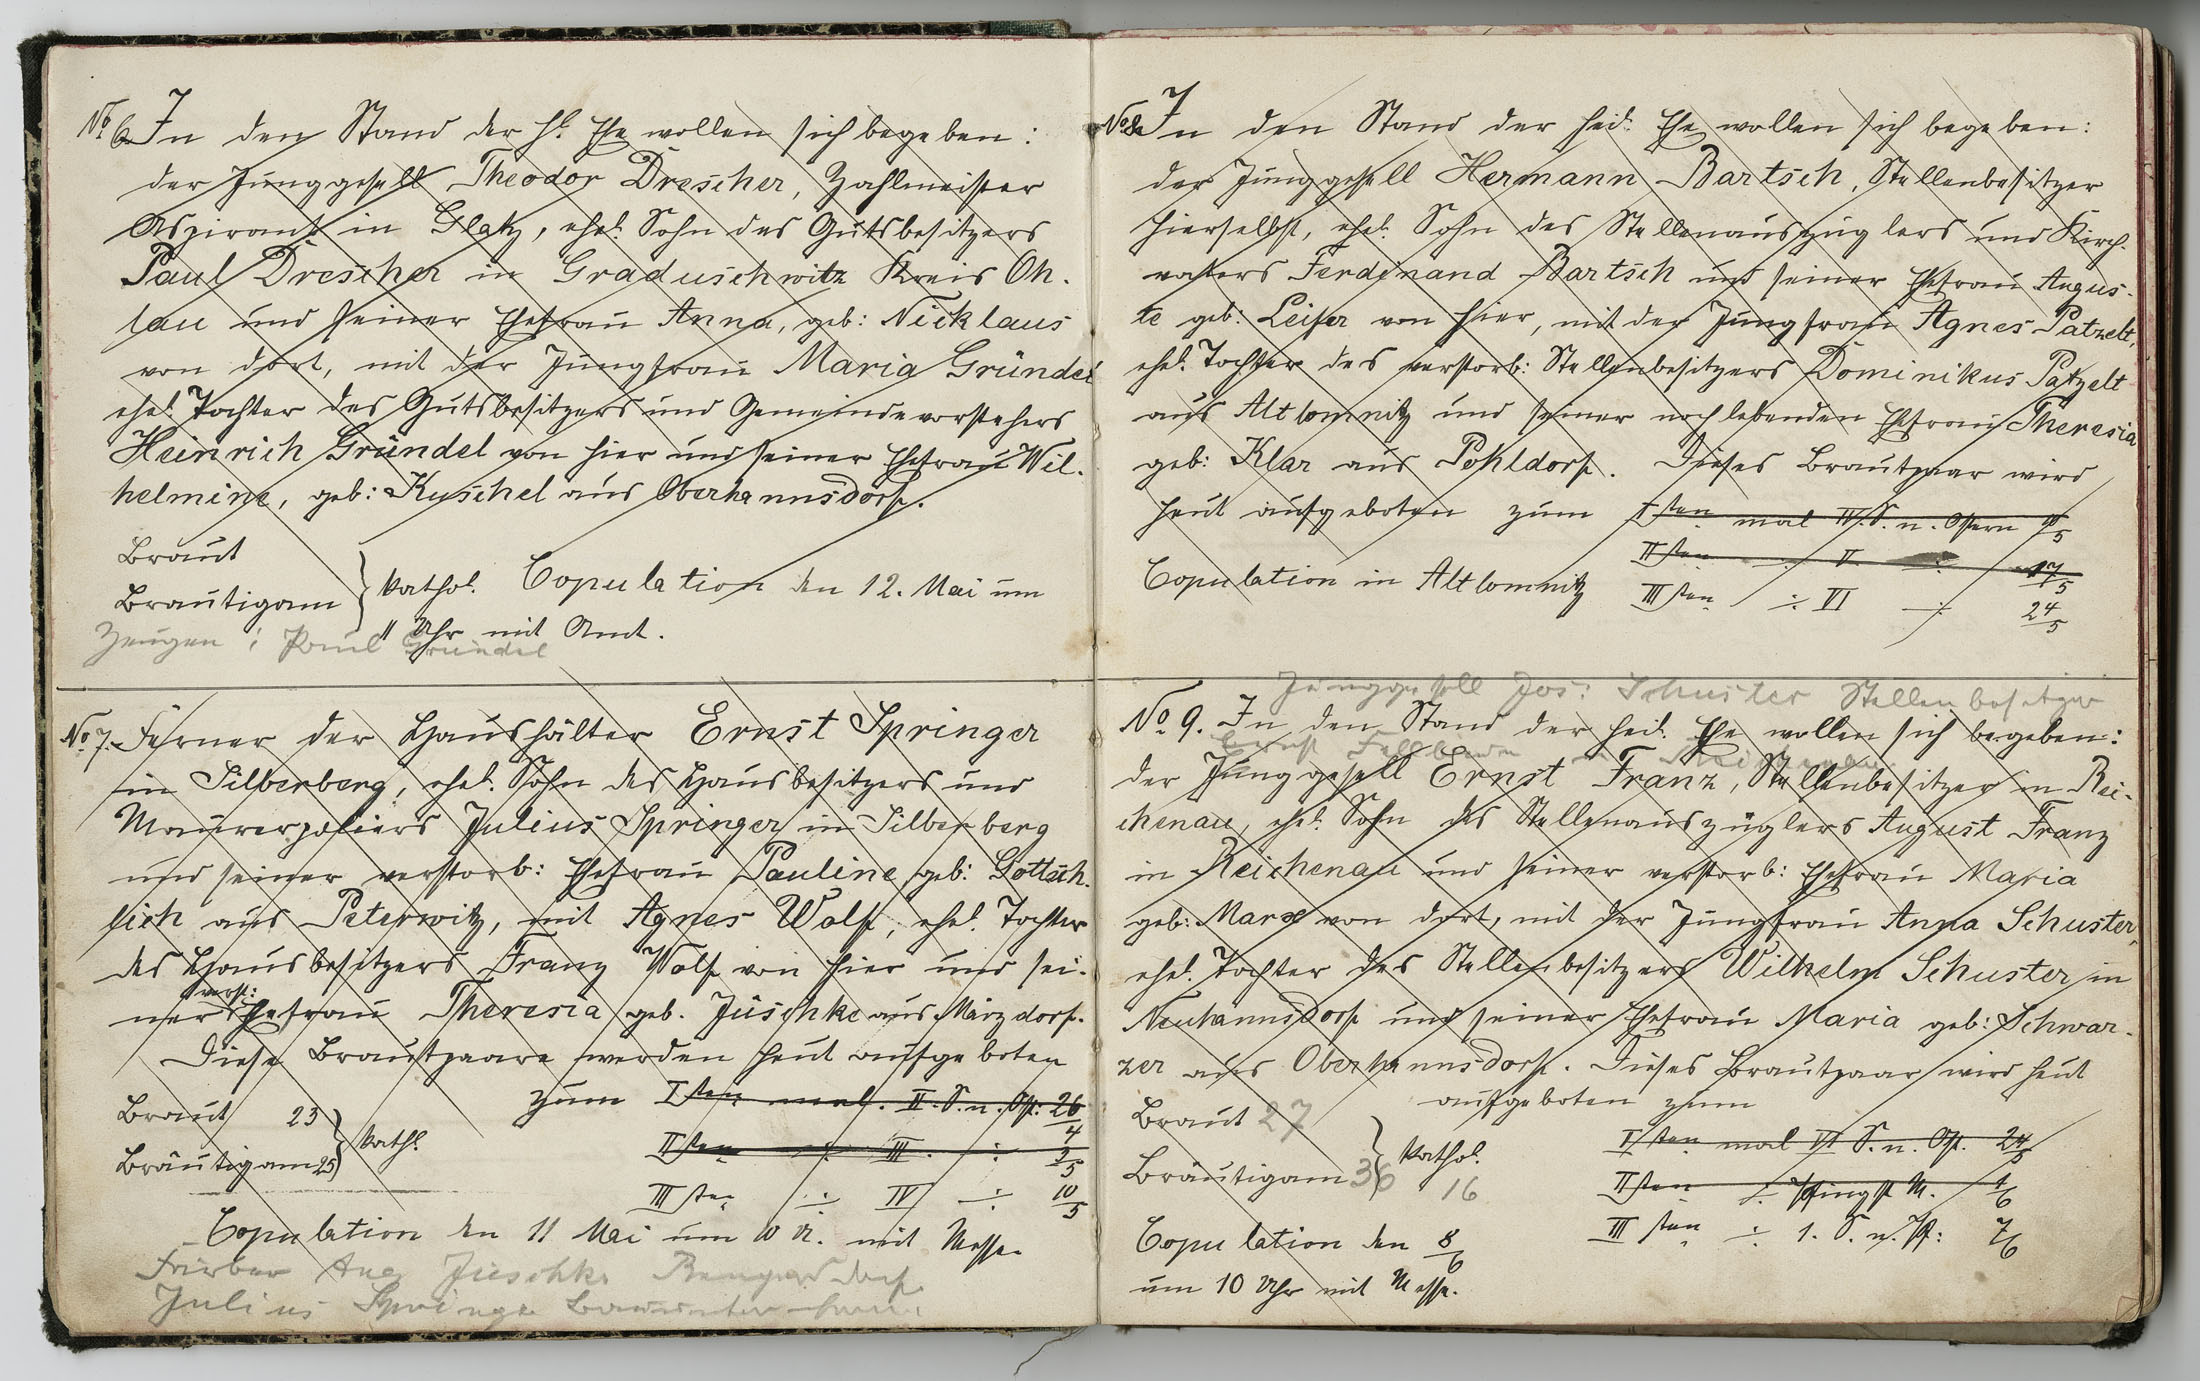 No 6. In den Stand der hl. Ehe wollen sich begeben:
der Junggesell Theodor Drescher, Zahlmeister
Aspirant in Glatz, ehel. Sohn des Gutsbesitzers
Paul Drescher in Graduschwitz Kreis Oh-
lau und seiner Ehefrau Anna, geb: Nicklaus
von dort, mit der Jungfrau Maria Gründel
ehel. Tochter des Gutsbesitzers und Gemeindevorstehers
Heinrich Gründel von hier und seiner Ehefrau Wil-
helmine, geb: Kuschel aus Oberhannsdorf.
Braut
Bräutigam } kathol. Copulation den 12. Mai um
11 Uhr mit Amt.
Zeugen: Paul Gründel
No 7. Ferner der Haushälter Ernst Springer
in Silberberg, ehel. Sohn des Hausbesitzers und
Maurerpoliers Julius Springer in Silberberg
und seiner verstorb: Ehefrau Pauline geb: Gottsch-
lich aus Peterwitz, mit Agnes Wolf, ehel. Tochter
des Hausbesitzers Franz Wolf von hier und sei-
verst:
ner Ehefrau Theresia geb. Jüschke aus Märzdorf.
Diese Brautpaare werden heut aufgeboten
zum Isten mal. II. S. n. Ost: 26/4
Braut 23
Bräutigam 25 } kathl.
IIsten ./. III. : 3/5
IIIsten ./. IV ./. 10/5
Copulation den 11 Mai um 10 U. mit Messe
Aug Jüschke
Julius Springer
No 8. In den Stand der heil: Ehe wollen sich begeben:
der Junggesell Hermann Bartsch, Stellenbesitzer
hierselbst, ehel. Sohn des Stellenauszüglers und Kirch-
vaters Ferdinand Bartsch und seiner Ehefrau Augus-
te geb: Leifer von hier, mit der Jungfrau Agnes Patzelt,
ehel. Tochter des verstorb: Stellenbesitzers Dominikus Patzelt
aus Altlomnitz und seiner noch lebenden Ehefrau Theresia
geb: Klar aus Pohldorf. Dieses Brautpaar wird
heut aufgeboten zum Isten mal IV. S. n. Ostern 10/5
IIsten ./. V ./. 17/5
Copulation in Altlomnitz IIIsten ./. VI ./. 24/5
Junggesell Jos: Schuster Stellenbesitzer
No 9. In den Stand der heil. Ehe wollen sich begeben:
Ernst
der Junggesell Ernst Franz, Stellenbesitzer in Rei-
chenau, ehel. Sohn des Stellenauszüglers August Franz
in Reichenau und seiner verstorb: Ehefrau Maria
geb: Marx von dort, mit der Jungfrau Anna Schuster,
ehel. Tochter des Stellenbesitzers Wilhelm Schuster in
Neuhannsdorf und seiner Ehefrau Maria geb: Schwar-
zer aus Oberhannsdorf. Dieses Brautpaar wird heut
aufgeboten zum
Braut 27
Bräutigam 36 } kathol.
16
Isten mal VI S. n. Ost. 24/5
IIsten ./. Pfingst M. 1/6
IIIsten ./. 1. S. n. Pf: 7/6
Copulation den 8/6
um 10 Uhr mit Messe.